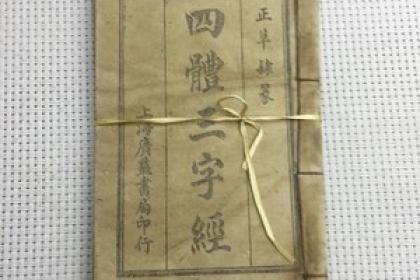 正草隸篆
四體三字經
上海廣益書局印行